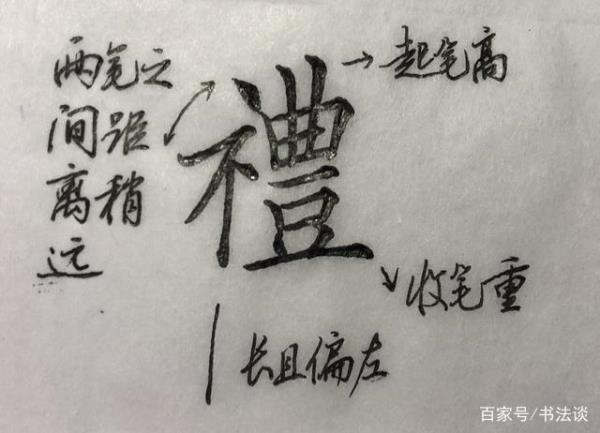 两笔之
间距
离稍
远
禮
起笔高
收笔重
长且偏左
百家号/书法谈